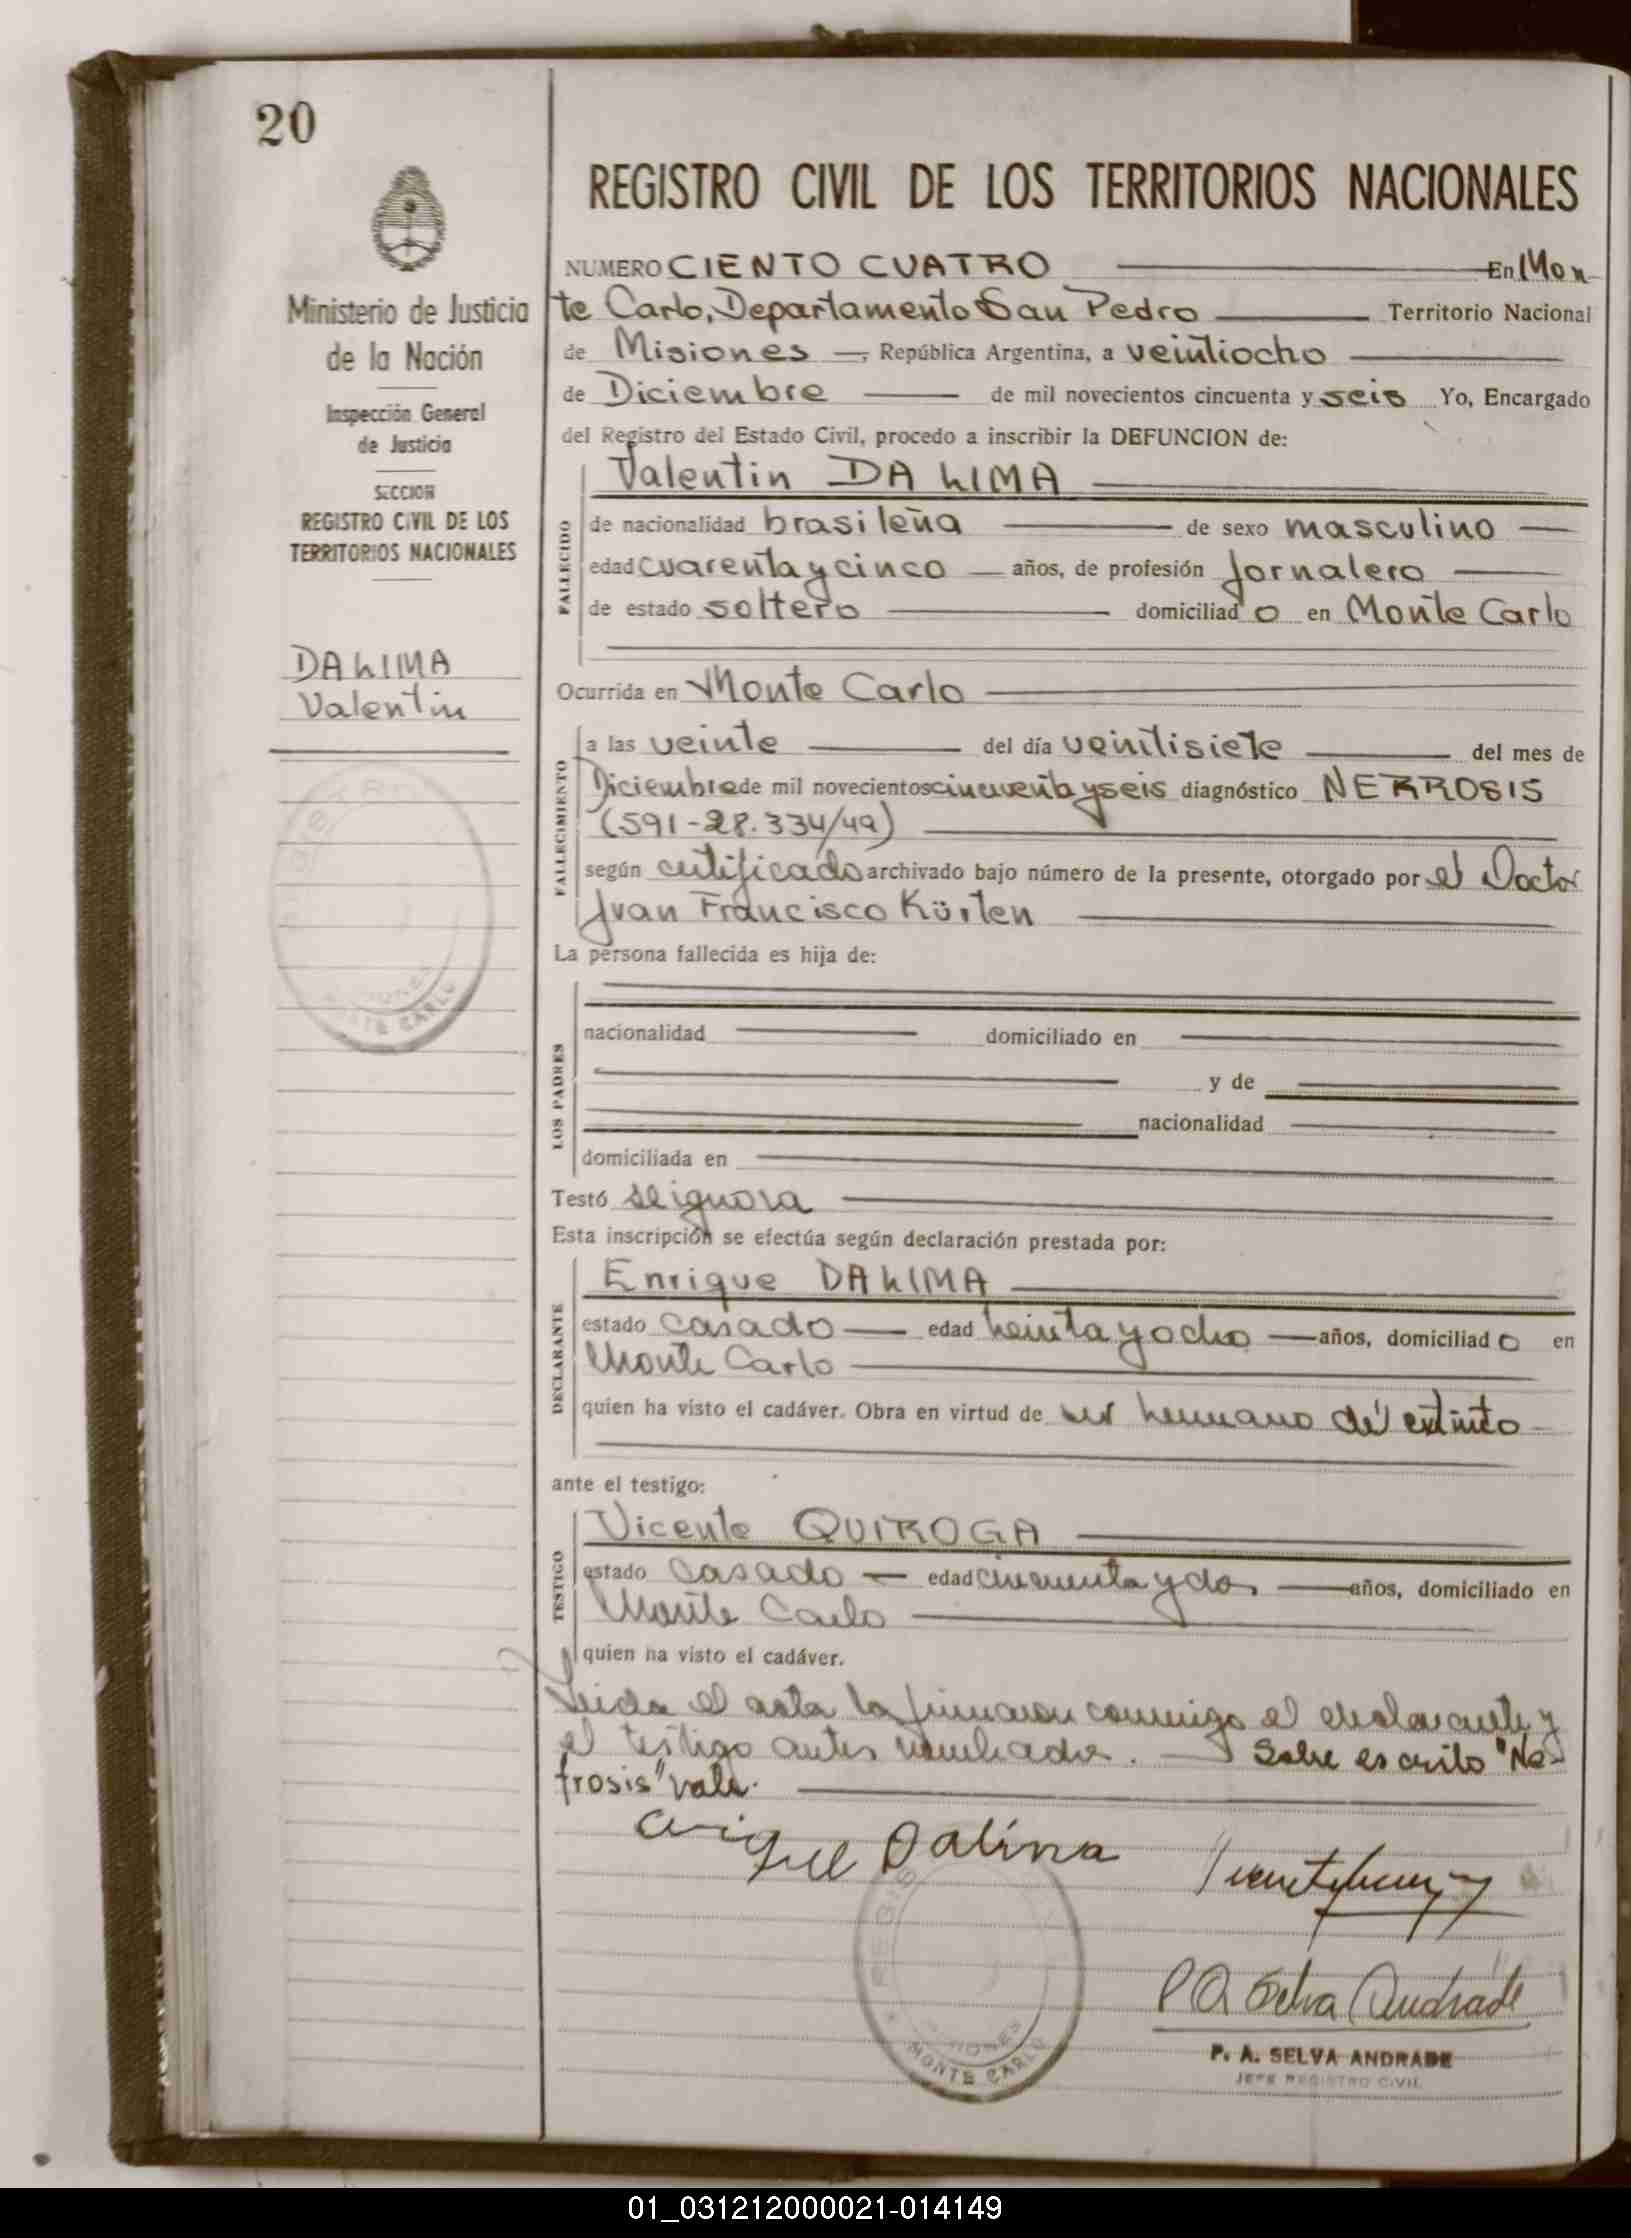 20
Ministerio de Justicia
de la Nación
Inspección General
de Justicia
SECCION
REGISTRO CIVIL DE LOS
TERRITORIOS NACIONALES
DA LIMA
Valentin
MONTE CARLO
REGISTRO CIVIL DE LOS TERRITORIOS NACIONALES
NUMERO CIENTO CUATRO En Mon
te Carlo, Departamento San Pedro Territorio Nacional
de Misiones, República Argentina, a veintiocho
de Diciembre de mil novecientos cincuenta y seis Yo, Encargado
del Registro del Estado Civil, procedo a inscribir la DEFUNCION de:
Valentin DA LIMA
FALLECIDO
de nacionalidad brasileña de sexo masculino
edad cuarenta y cinco años, de profesión Jornalero
de estado soltero domiciliado en Monte Carlo
Ocurrida en Monte Carlo
FALLECIMIENTO
a las veinte del día veintisiete del mes de
Diciembre de mil novecientos cincuenta y seis diagnóstico
(591-28.334/49)
según certificado archivado bajo número de la presente, otorgado por el Doctor
Juan Francisco Kürten
La persona fallecida es hija de:
LOS PADRES
nacionalidad domiciliado en
y de
nacionalidad
domiciliada en
Testó se ignora
Esta inscripción se efectúa según declaración prestada por:
Enrique DA LIMA
DECLARANTE
estado casado edad treinta y ocho años, domiciliado en
Monte Carlo
quien ha visto el cadáver. Obra en virtud de ser hermano del extinto
ante el testigo:
Vicente QUIROGA
TESTIGO
estado casado edad cincuenta y dos años, domiciliado en
Monte Carlo
quien ha visto el cadáver.
Leida el acta la firmaron conmigo el declarante y
el testigo antes nombrados. Sobre escrito "Ne
frosis" vale.
Dalima
P A Selva Andrade
MISIONES
MONTE CARLO
P. A. SELVA ANDRADE
JEFE REGISTRO CIVIL
01_031212000021-014149